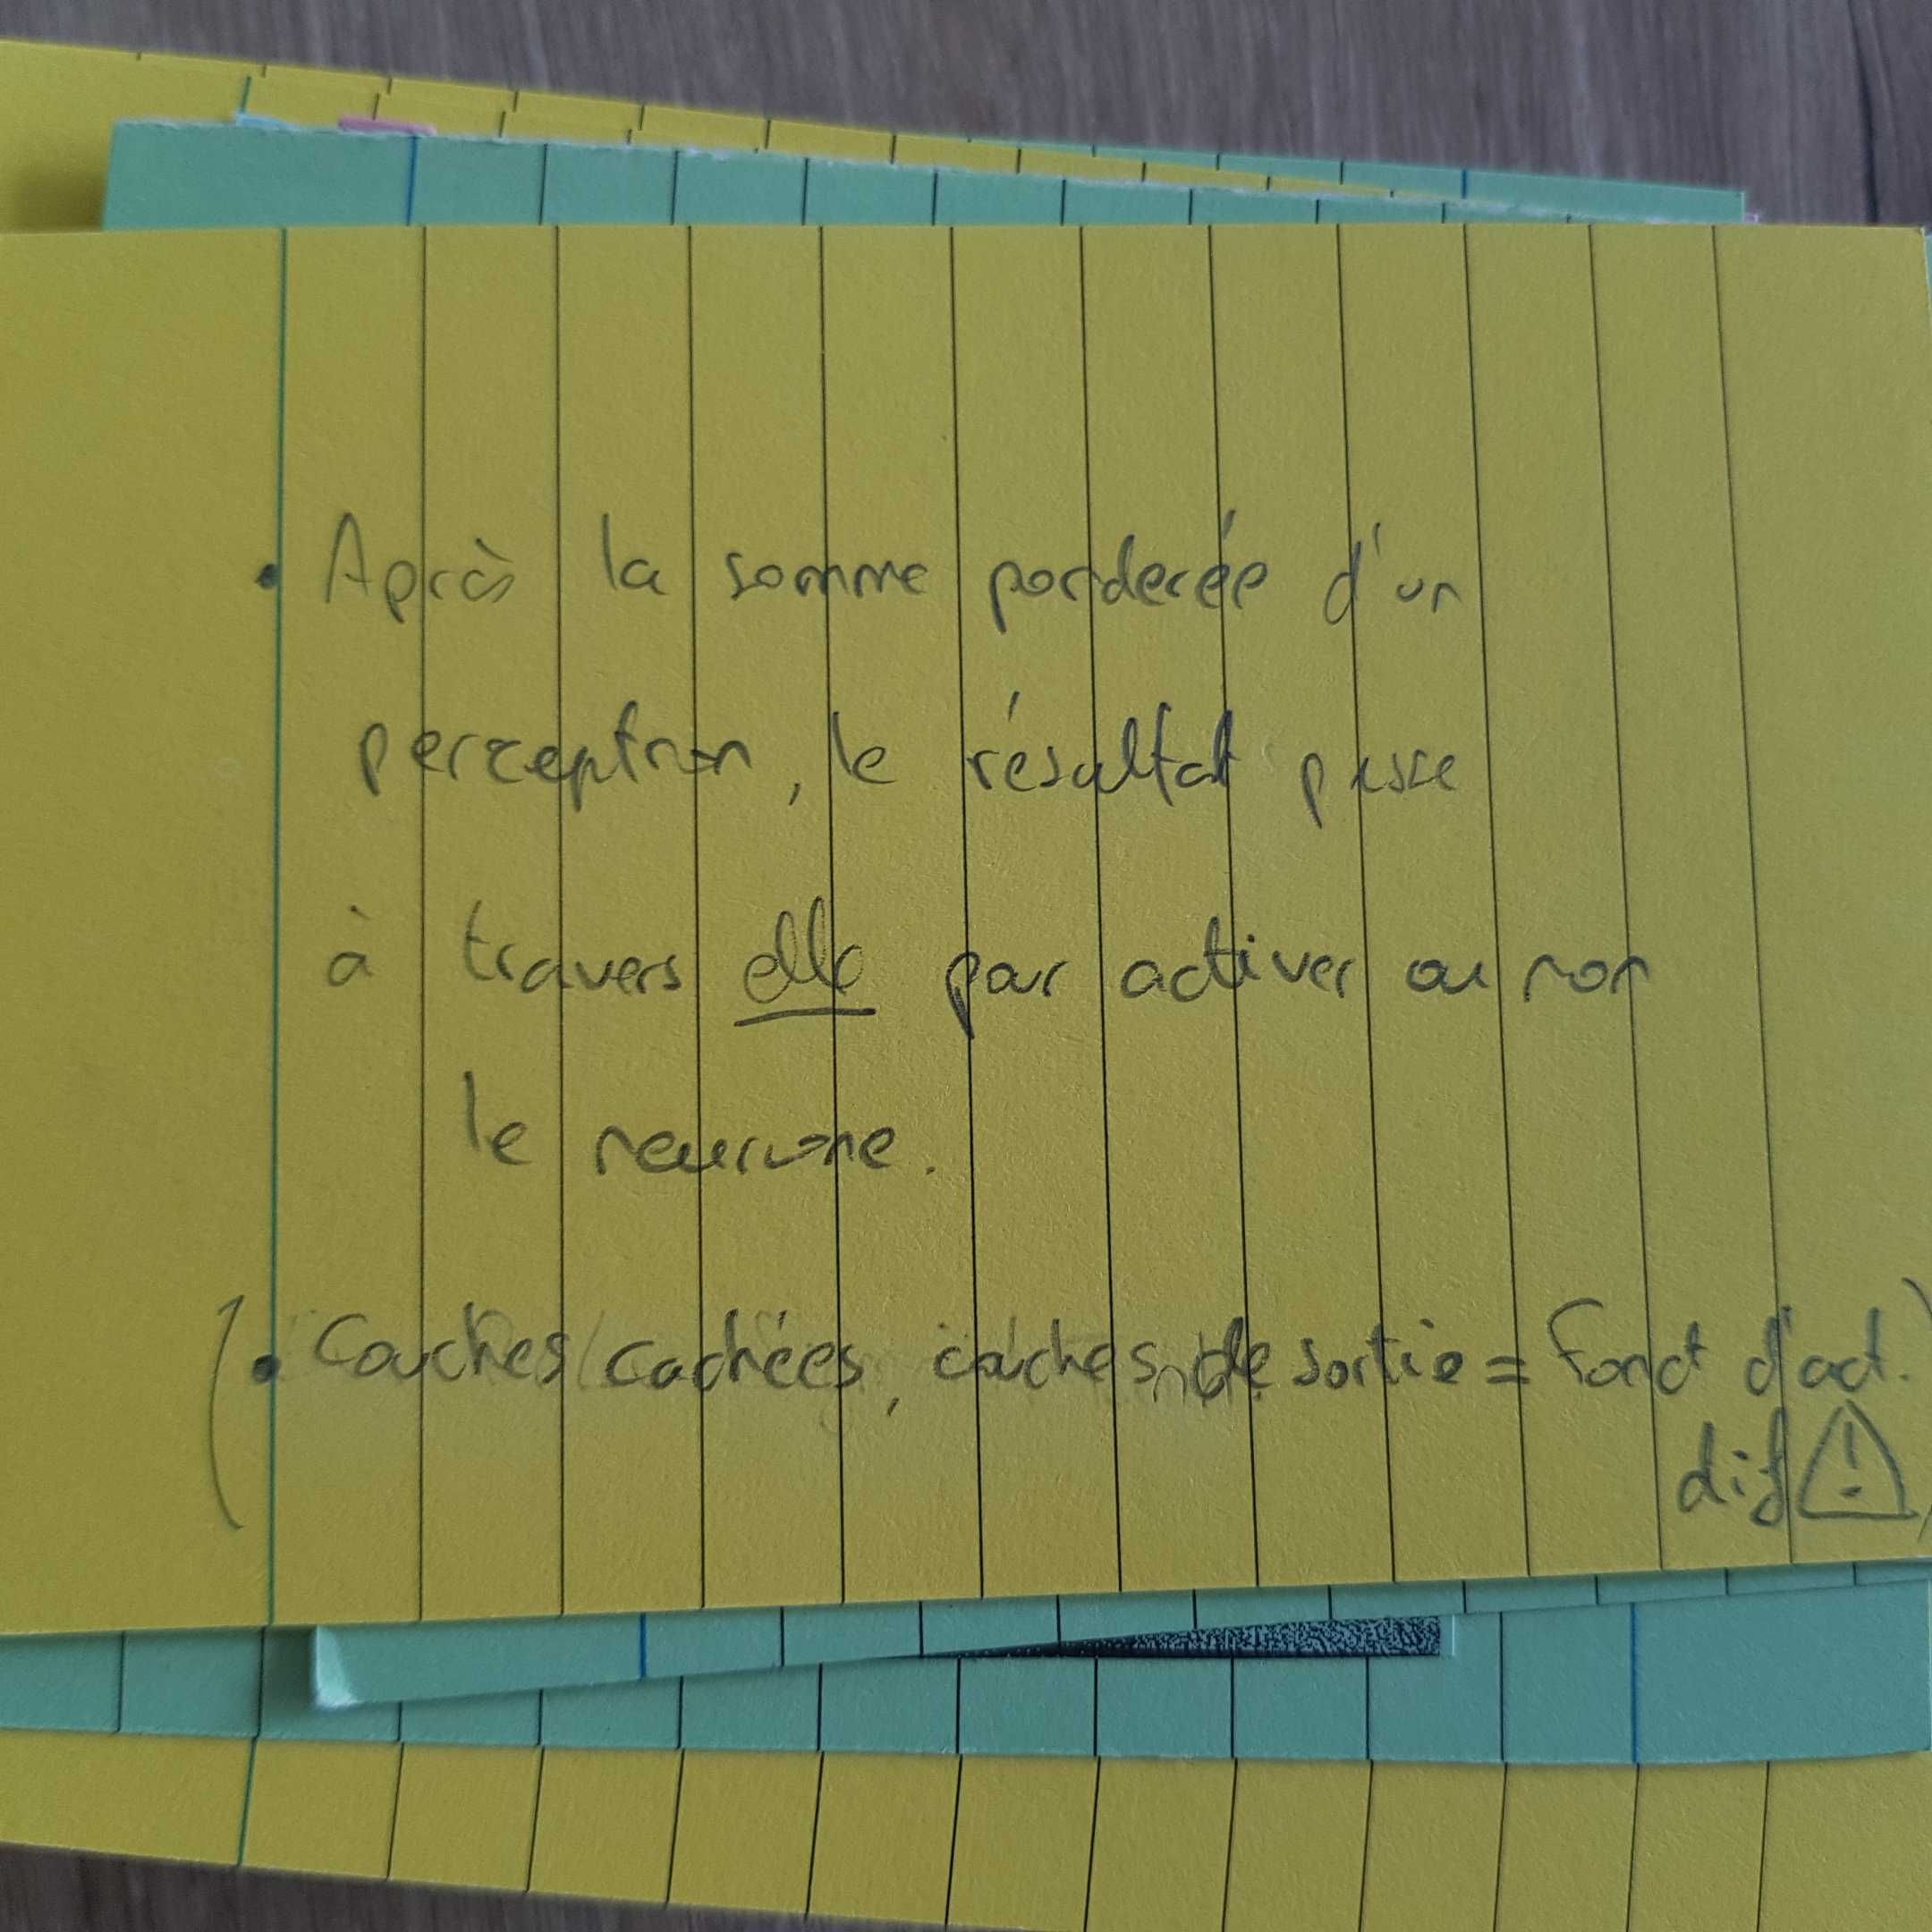 • Après la somme ponderée d'un
perceptron, le résultat passe
à travers elle pour activer ou non
le neurone.
(• Couches cachées, couches de sortie = Fonct d'act.
dif ⚠)